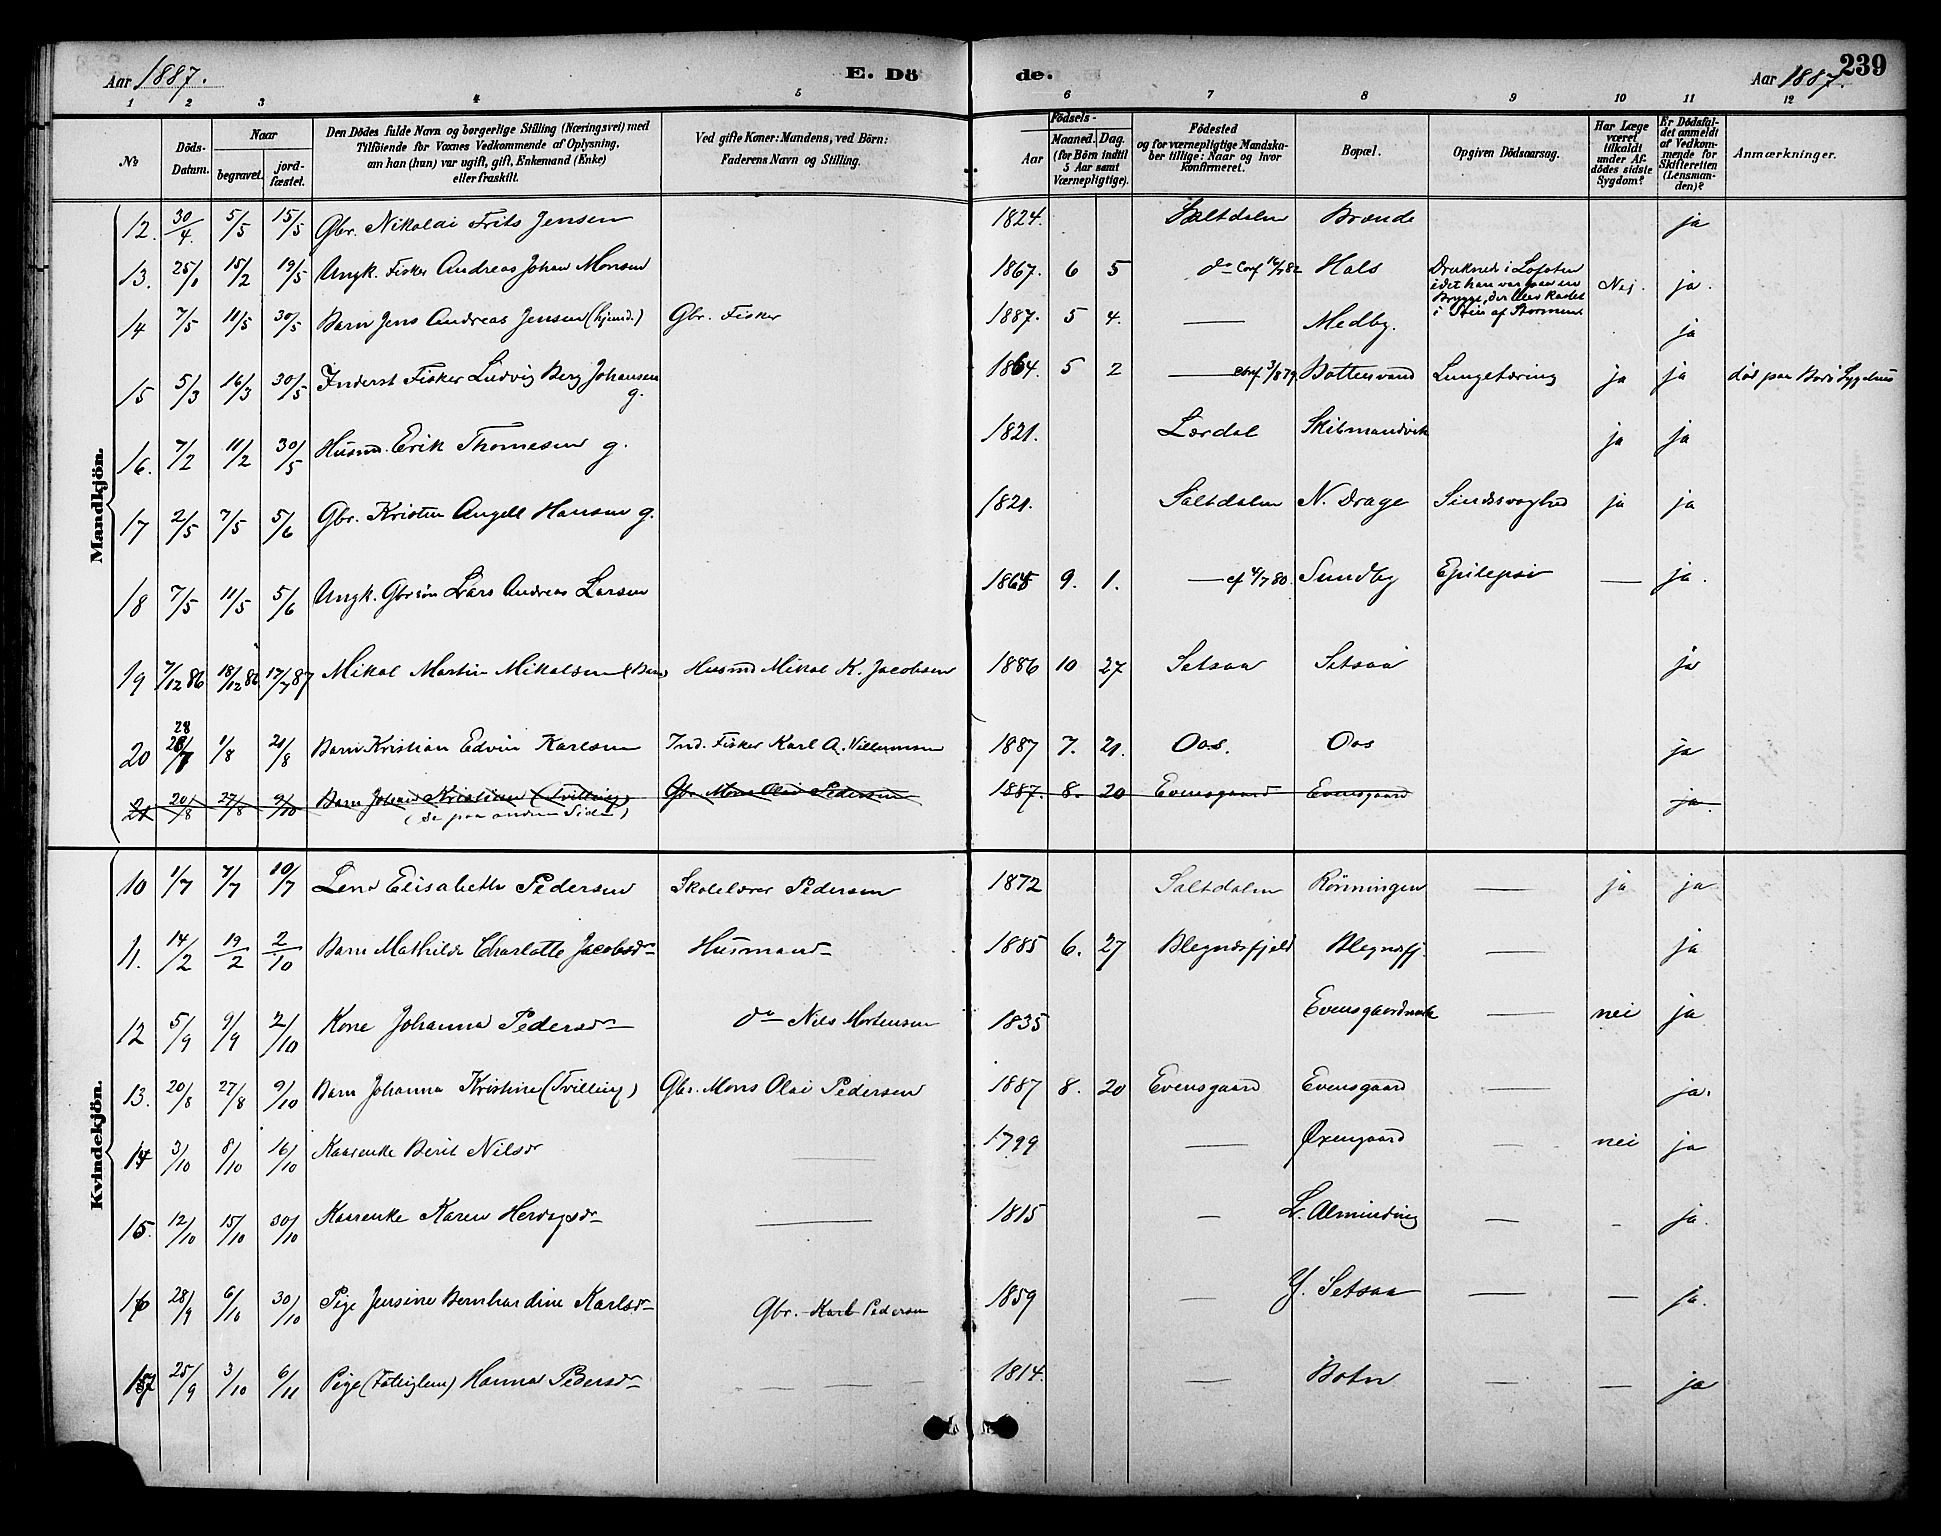 Aar 1887. E. Dö de. Aar 1887. 239
1 2 3 4 5 6 7 8 9 10 11 12
No
Döds-Datum.
Naar
begravet.
jord-fæstet.
Den Dödes fulde Navn og borgerlige Stilling (Næringsvei) med
Tilföiende for Voxnes Vedkommende af Oplysning,
om han (hun) var ugift, gift, Enkemand (Enke)
eller fraskilt.
Ved gifte Koner: Mandens, ved Börn:
Faderens Navn og Stilling.
Födsels-
Aar
Maaned. Dag.
(for Börn indtil
5 Aar samt
Værnepligtige).
Födested
og for værnepligtige Mandska-
ber tillige: Naar og hvor
konfirmeret.
Bopæl.
Opgiven Dödsaarsag.
Har Læge
været
tilkaldt
under Af-
dödes sidste
Sygdom?
Er Dödsfal-
det anmeldt
af Vedkom-
mende for
Skifteretten
(Lensman-
den)?
Anmærkninger.
Mandkjön.
12. 30/4. 5/5 15/5 Gbr. Nikolai Frits Jensen 1824. Saltdalen Brænde ja
13. 25/1 15/2 19/5 Ungk. Fisker Andreas Johan Monsen 1867. 6 5 do Conf 16/7 82 Hals Druknede i Lofoten
idet han var paa en
Brygge, der blev kastet
i Støen af Stormen Nej. ja.
14 7/5 11/5 30/5 Barn Jens Andreas Jensen (hjemd.) Gbr. Fisker 1887. 5 4. — Medby. ja
15 5/3 16/3 30/5 Inderst Fisker Ludvig Berg Johansen g. 1864. 5 2 — Conf 3/8 79. Bottenvand Lungetæring ja ja död paa Bodö Sygehus
16. 7/2 11/2 30/5 Husmd. Erik Thomesen g. 1821. Lærdal Skibmandvik ja ja
17 2/5 7/5 5/6 Gbr. Kristen Angell Hansen g. 1821. Saltdalen N. Drage Sindssvaghed ja ja
18 7/5 11/5 5/6 Ungk. Gbrsön Lars Andreas Larsen 1865 9. 1. — cf 4/7 80. Sundby Epilepsi — ja.
19 7/12 86 18/12 86 17/7 87 Mikal Martin Mikalsen (Barn) Husmd Mikal K. Jacobsen 1886 10 27 Setsaa Setsaa ja
20 28/7 1/8 21/8 Barn Kristian Edvin Karlsen Ind. Fisker Karl A. Villumsen 1887 7. 21. Oas. Oas ja
21 20/8 27/8 9/10 Barn Johan Kristian (Tvilling) Gbr. Mons Olai Pedersen 1887. 8. 20 Evensgaard Evensgaard ja
(se paa anden Side)
Kvindekjön.
10 1/7 7/7 10/7 Lena Elisabeth Pedersen Skolelærer Pedersen 1872 Saltdalen Rönningen — ja ja
11. 14/2 19/2 2/10 Barn Mathilde Charlotte Jacobsdr Husmand 1885 6. 27 Blegnesfjeld Blegnesfj. — ja
12 5/9 9/9 2/10 Kone Johanna Pedersdr do Nils Mortensen 1835 Evensgaardmark — nei ja
13. 20/8 27/8 9/10 Barn Johanna Kristine (Tvilling) Gbr. Mons Olai Pedersen 1887 8. 20 Evensgaard Evensgaard — ja.
14 3/10 8/10 16/10 Kaarenke Berit Nilsdr — 1799 — Øxengaard — nei ja
15. 12/10 15/10 30/10 Kaarenke Karen Hervigsdr — 1815 — L. Alminding — - ja.
16 28/9 6/10 30/10 Pige Jensine Bernhardine Karlsdr Gbr. Karl Pedersen 1859 — Y. Setsaa — — ja.
17 25/9 3/10 6/11 Pige (Fattiglem) Hanna Pedersdr — — — 1814. — Botn — — ja